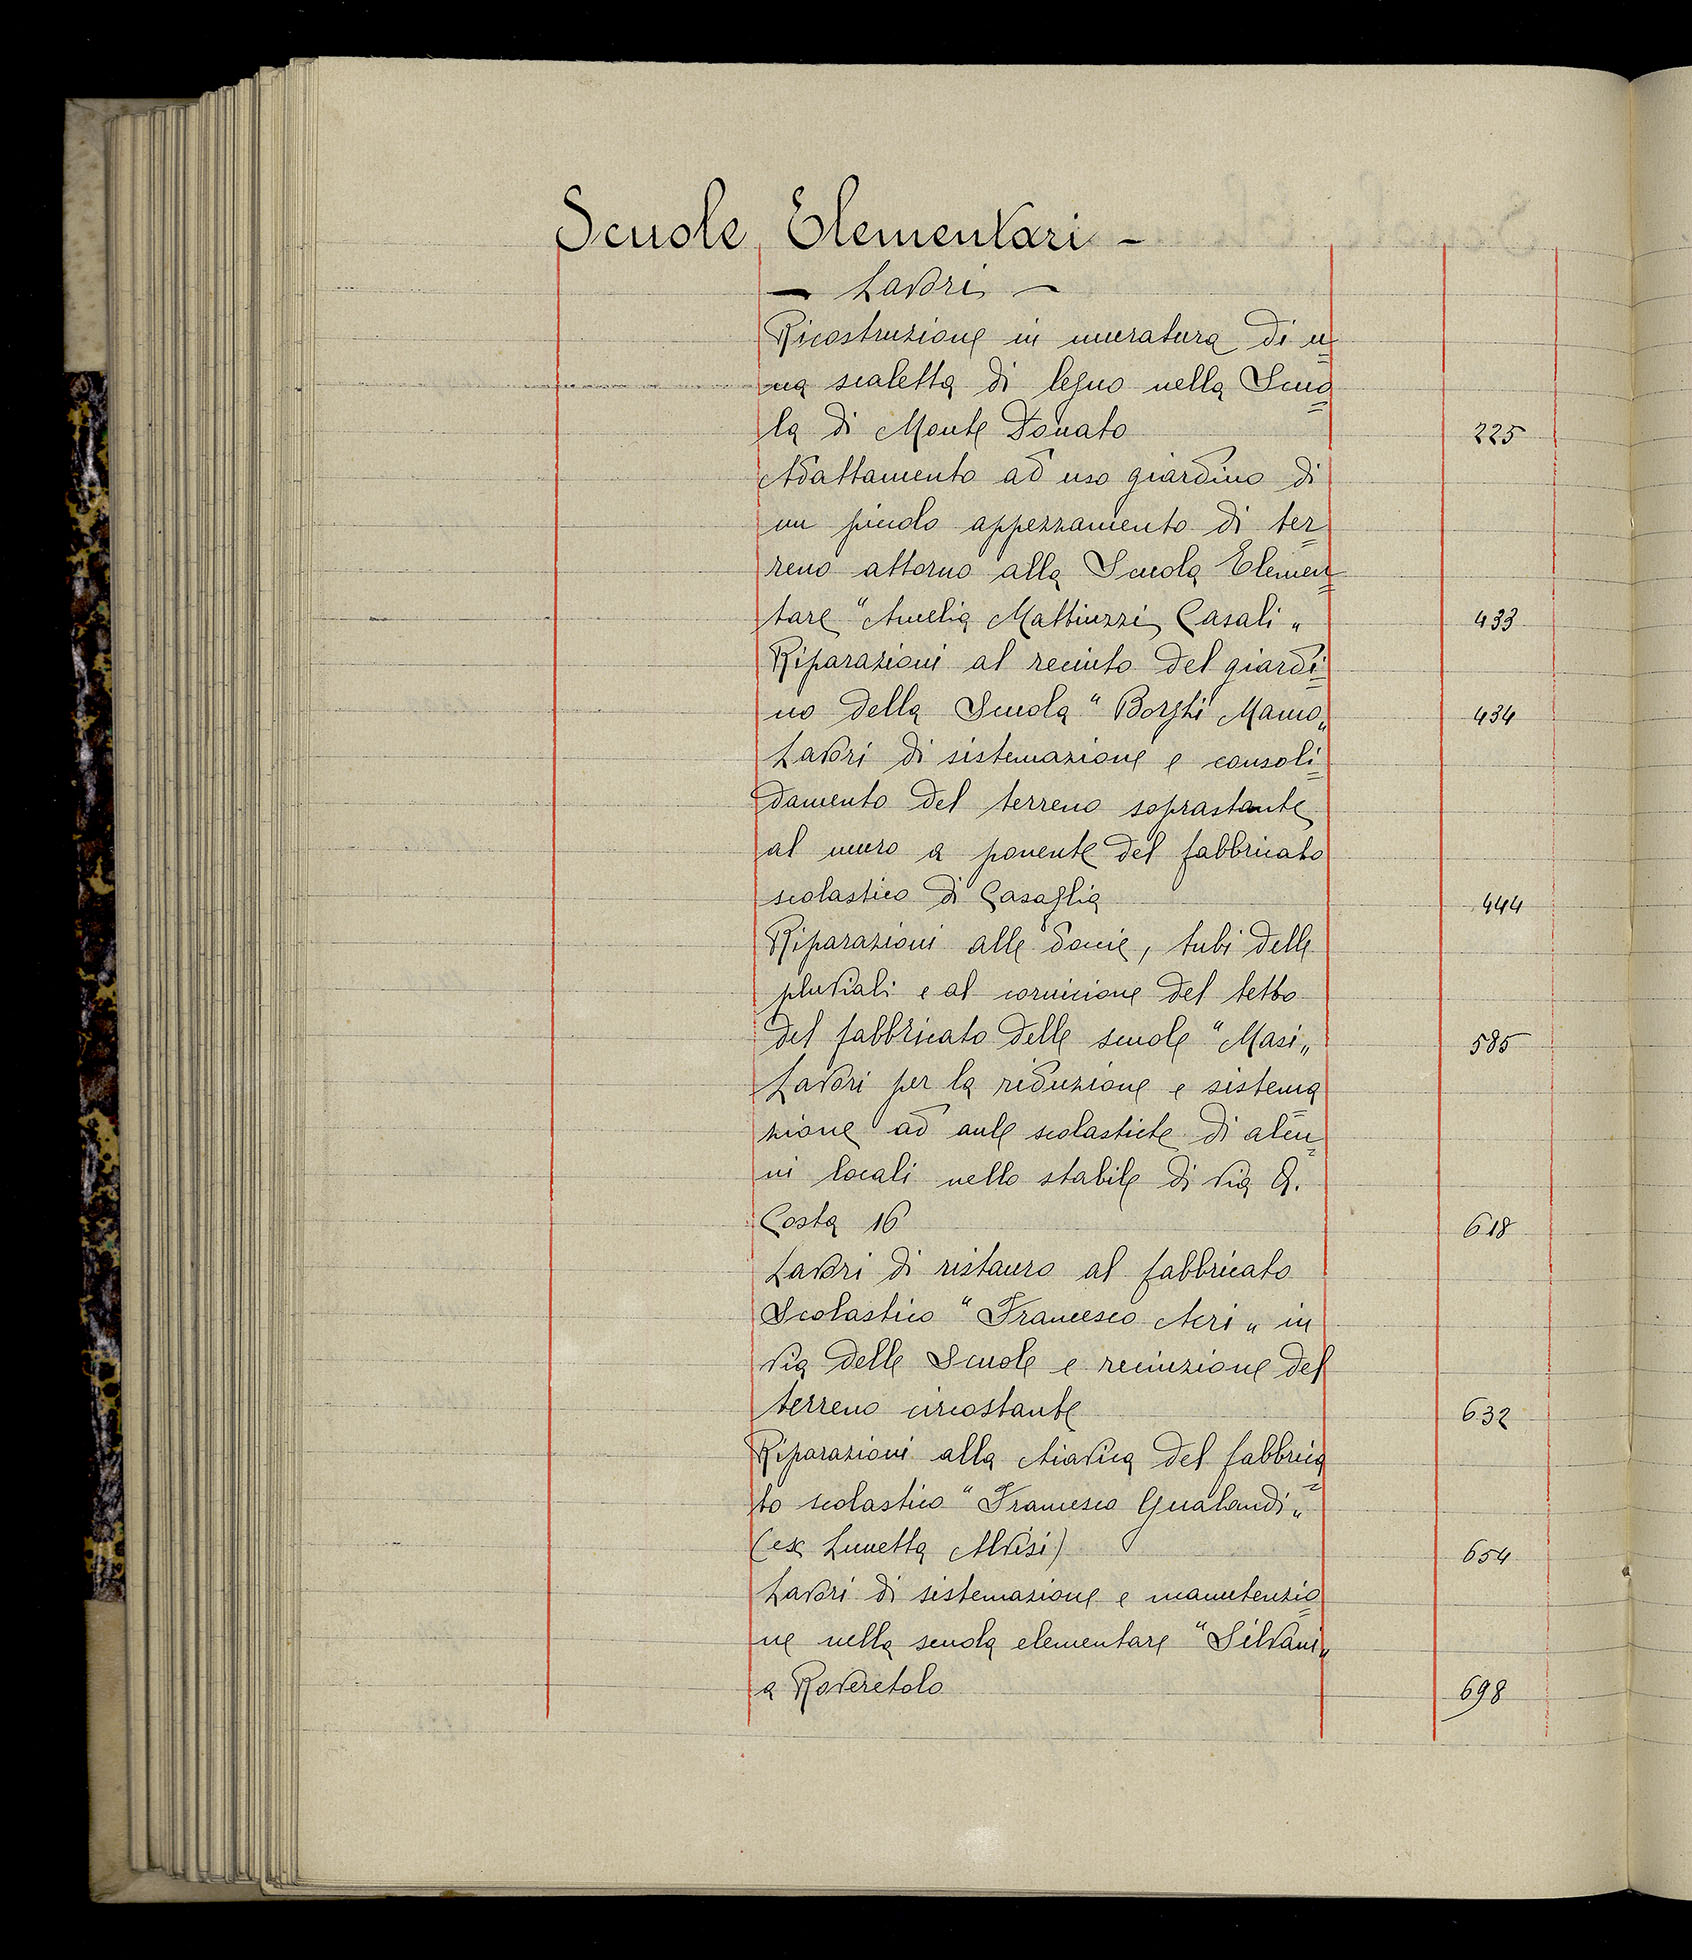 Scuole Elementari -
- Lavori -
Ricostruzione in muratura di u=
na scaletta di legno nella Scuo=
la di Monte Donato 225
Adattamento ad uso giardino di
un piccolo appezzamento di ter=
reno attorno alla Scuola Elemen=
tare "Amelia Mattiuzzi Casali„ 433
Riparazioni al recinto del giardi=
no della Scuola "Borghi Mamo„ 434
Lavori di sistemazione e consoli=
damento del terreno soprastante
al muro a ponente del fabbricato
scolastico di Casaglia 444
Riparazioni alle docie, tubi delle
pluviali e al cornicione del tetto
del fabbricato delle scuole "Masi„ 585
Lavori per la riduzione e sistema
zione ad aule scolastiche di alcu=
ni locali nello stabile di via A.
Costa 16 618
Lavori di ristauro al fabbricato
Scolastico "Francesco Acri„ in
via delle Scuole e recinzione del
terreno circostante 632
Riparazioni alla chiavica del fabbrica=
to scolastico "Francesco Gualandi„
(ex Lunetta Alvisi) 654
Lavori di sistemazione e manutenzio=
ne nella scuola elementare "Silvani„
a Roveretolo 698